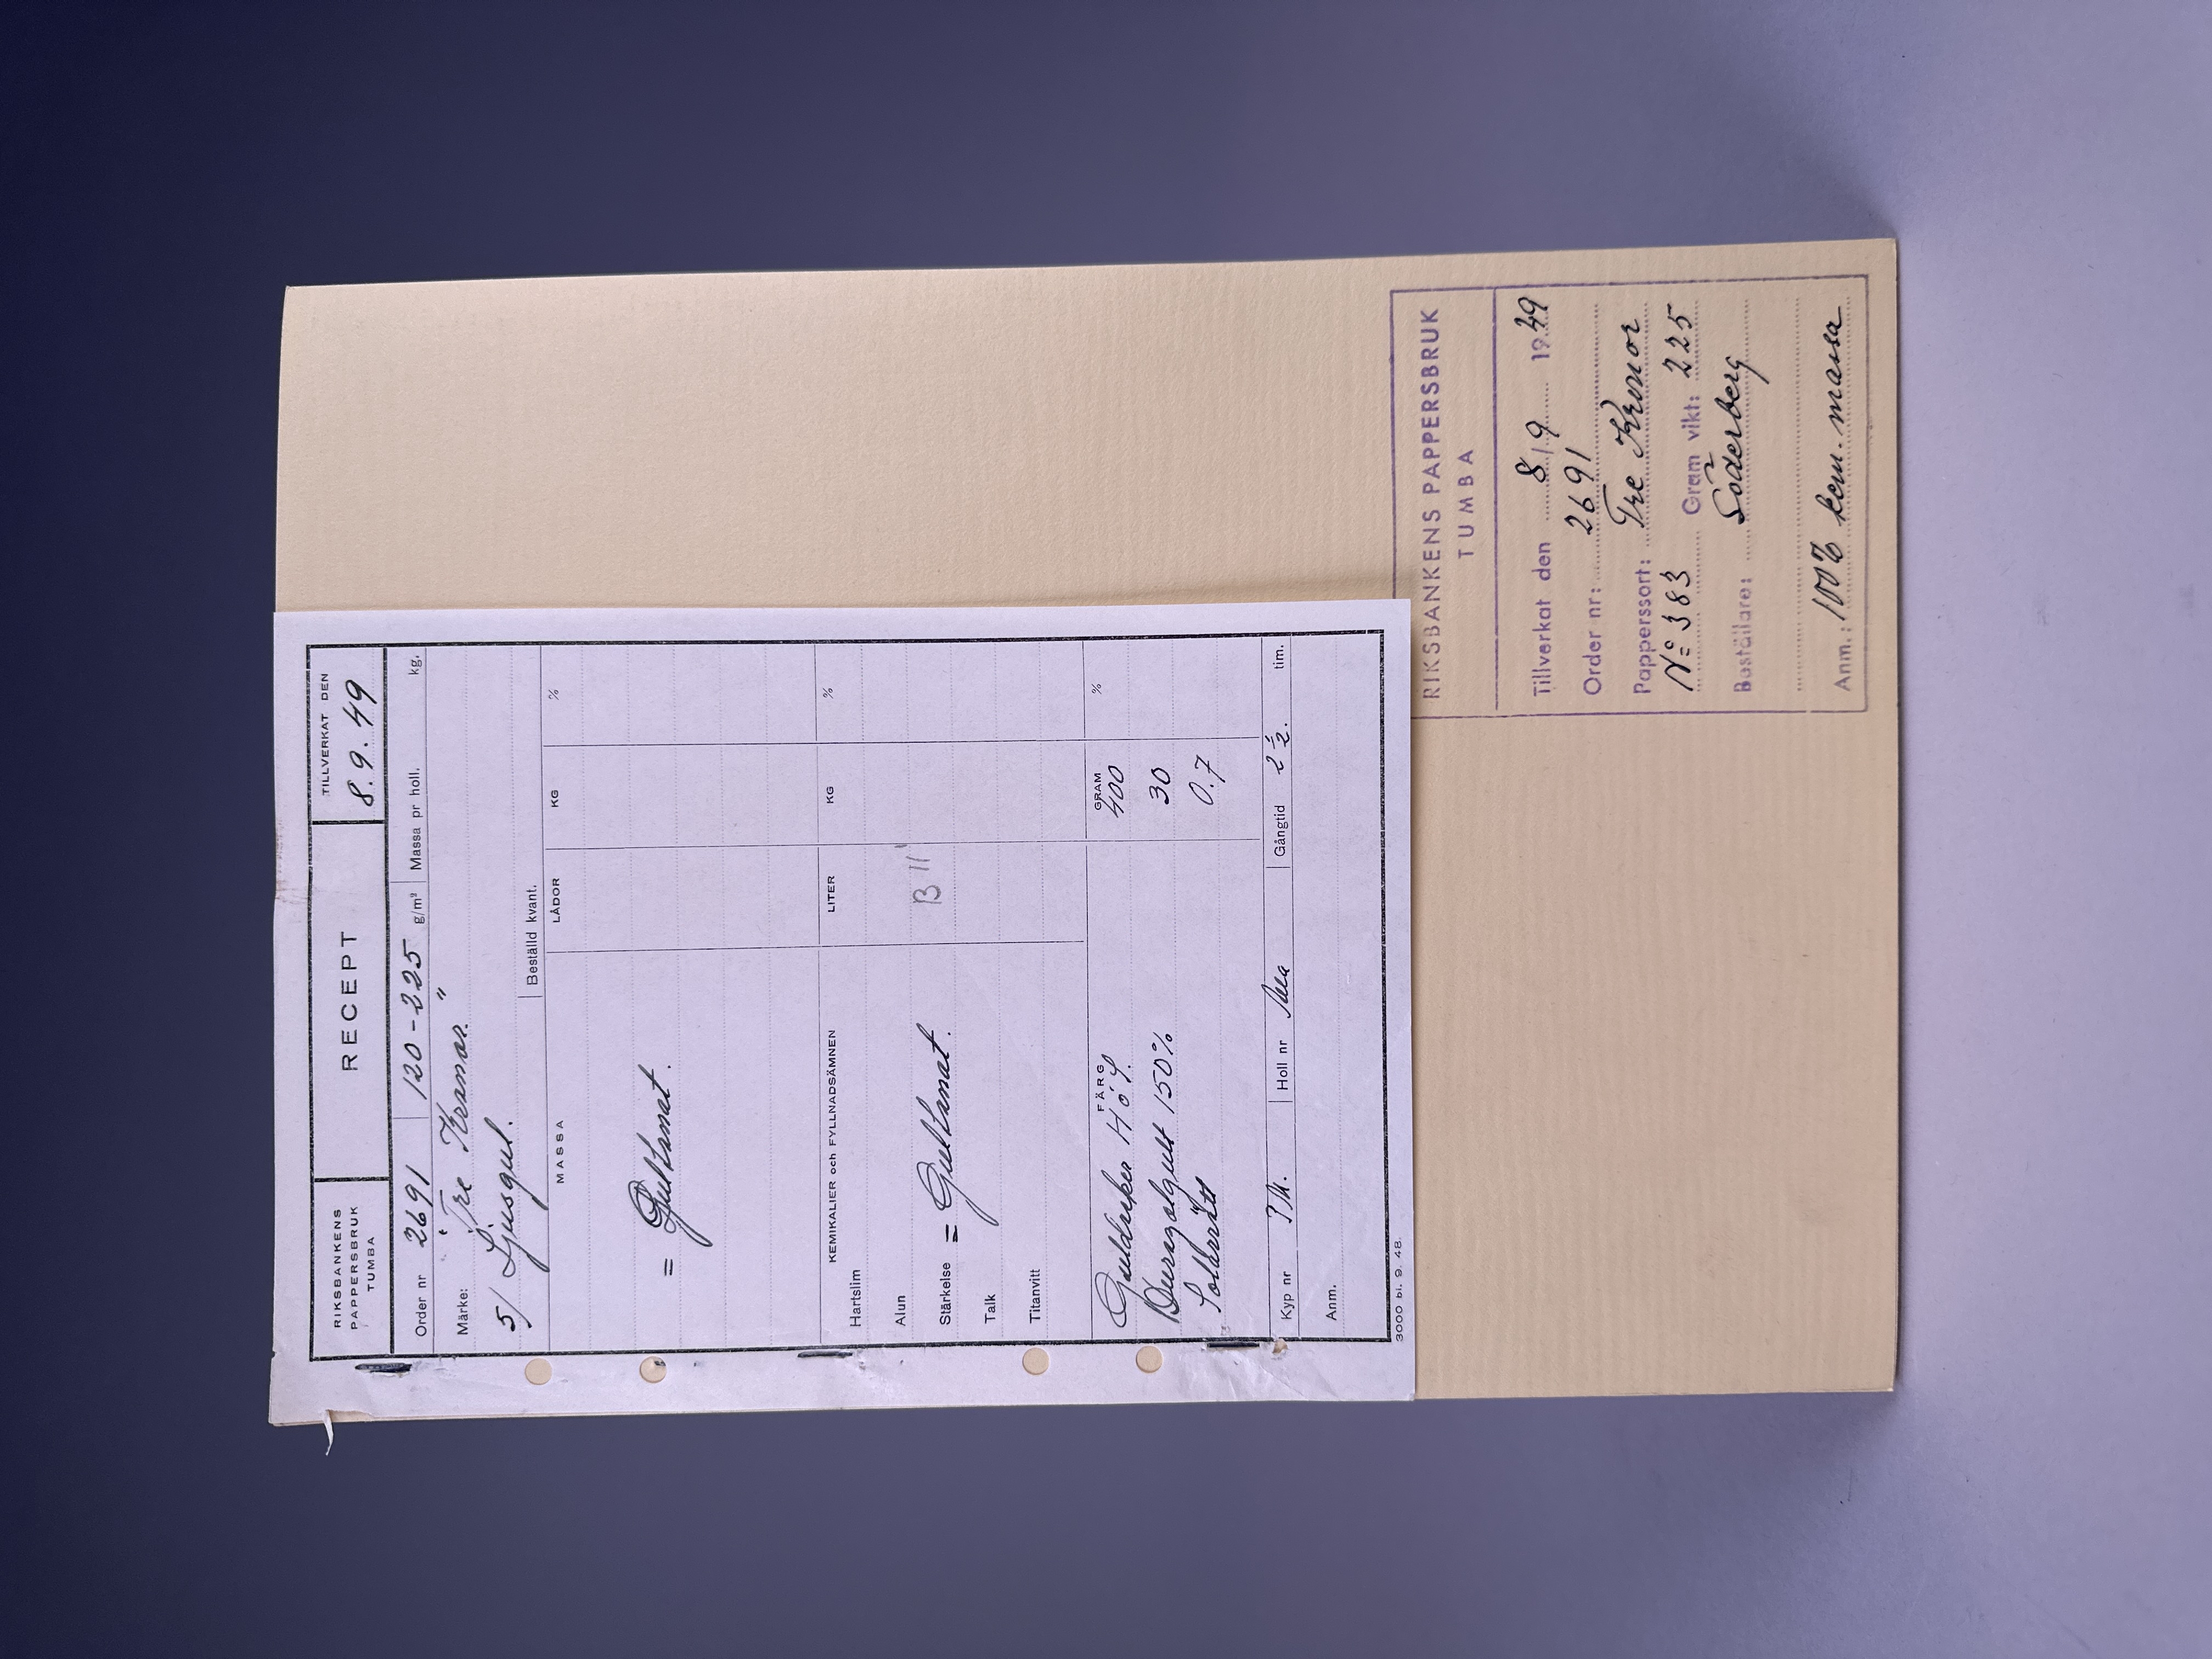 RIKSBANKENS
PAPPERSBRUK
TUMBA
RECEPT
TILLVERKAT DEN
8.9.49
Order nr 2691 120-225 g/m² Massa pr holl. kg.
Märke: "Tre Kronor."
5/ Ljusgul.
Beställd kvant.
MASSA LÅDOR KG %
= Gultonat.
KEMIKALIER och FYLLNADSÄMNEN LITER KG %
Hartslim
Alun
B 11
Stärkelse = Gultonat.
Talk
Titanvitt
FÄRG GRAM %
400
150% 30
Solarrött 0.7
Kyp nr Holl nr Gångtid 2½. tim.
Anm.
3000 bl. 9. 48.
RIKSBANKENS PAPPERSBRUK
TUMBA
Tillverkat den 8/9 1949
Order nr: 2691
Papperssort: Tre Kronor
No 383 Gram vikt: 225
Beställare: Söderberg
Anm.: 100% kem. massa